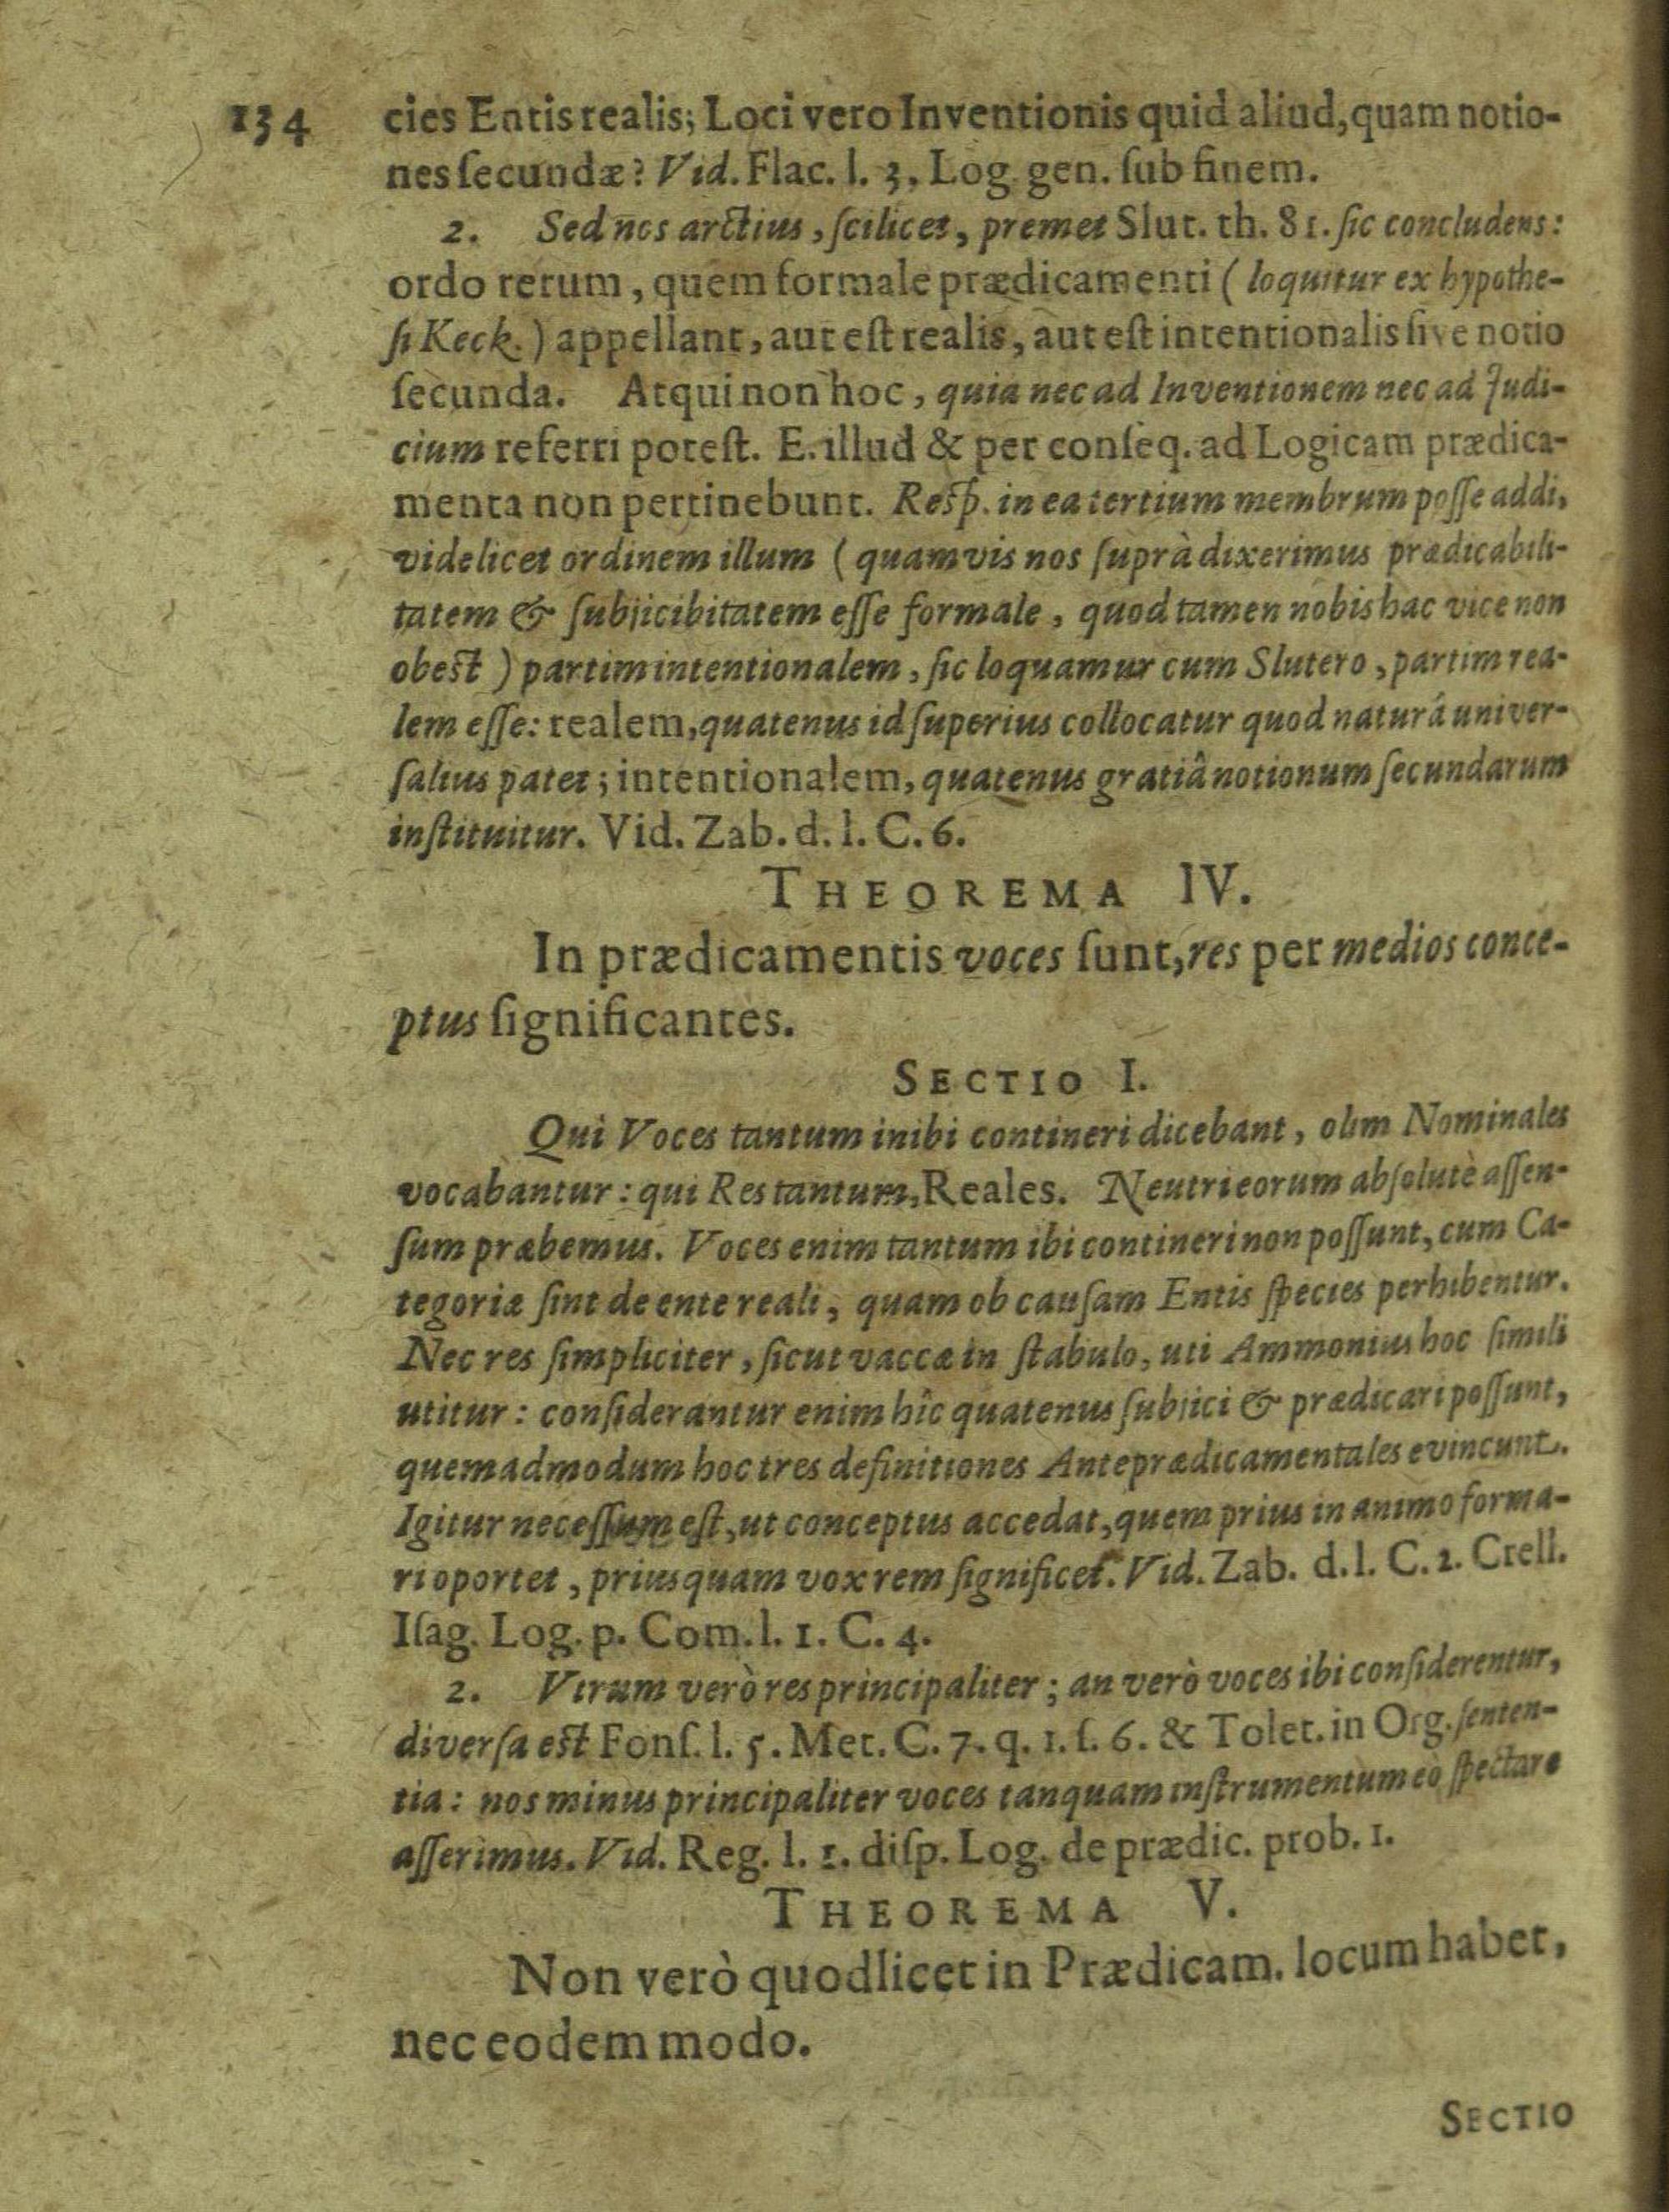 134 cies Entis realis; Loci vero Inventionis quid aliud, quam notio-
nes ſecundæ? Vid. Flac. l. 3. Log. gen. ſub finem.
2. Sed nos arctius, ſcilicet, premet Slut. th. 81. ſic concludens:
ordo rerum, quem formale prædicamenti ( loquitur ex hypothe-
ſi Keck. ) appellant, aut eſt realis, aut eſt intentionalis ſive notio
ſecunda. Atqui non hoc, quia nec ad Inventionem nec ad Judi-
cium referri poteſt. E. illud & per conſeq. ad Logicam prædica-
menta non pertinebunt. Reſp. in ea tertium membrum poſſe addi,
videlicet ordinem illum ( quamvis nos ſuprà dixerimus prædicabili-
tatem & ſubjicibitatem eſſe formale, quod tamen nobis hac vice non
obeſt ) partim intentionalem, ſic loquamur cum Slutero, partim rea-
lem eſſe: realem, quatenus id ſuperius collocatur quod naturâ univer-
ſalius patet; intentionalem, quatenus gratiâ notionum ſecundarum
inſtituitur. Vid. Zab. d. l. C. 6.
THEOREMA IV.
In prædicamentis voces ſunt, res per medios conce-
ptus ſignificantes.
SECTIO I.
Qui Voces tantum inibi contineri dicebant, olim Nominales
vocabantur: qui Res tantum, Reales. Neutri eorum abſolutè aſſen-
ſum præbemus. Voces enim tantum ibi contineri non poſſunt, cum Ca-
tegoriæ ſint de ente reali, quam ob cauſam Entis ſpecies perhibentur.
Nec res ſimpliciter, ſicut vaccæ in ſtabulo, uti Ammonius hoc ſimili
utitur: conſiderantur enim hîc quatenus ſubjici & prædicari poſſunt,
quemadmodum hoc tres definitiones Anteprædicamentales evincunt.
Igitur neceſſum eſt, ut conceptus accedat, quem prius in animo forma-
ri oportet, priusquam vox rem ſignificet. Vid. Zab. d. l. C. 2. Crell.
Iſag. Log. p. Com. l. 1. C. 4.
2. Utrum verò res principaliter; an verò voces ibi conſiderentur,
diverſa eſt Fonſ. l. 5. Met. C. 7. q. 1. ſ. 6. & Tolet. in Org. ſenten-
tia: nos minus principaliter voces tanquam inſtrumentum eò ſpectare
aſſerimus. Vid. Reg. l. 1. diſp. Log. de prædic. prob. 1.
THEOREMA V.
Non verò quodlicet in Prædicam. locum habet,
nec eodem modo.
SECTIO